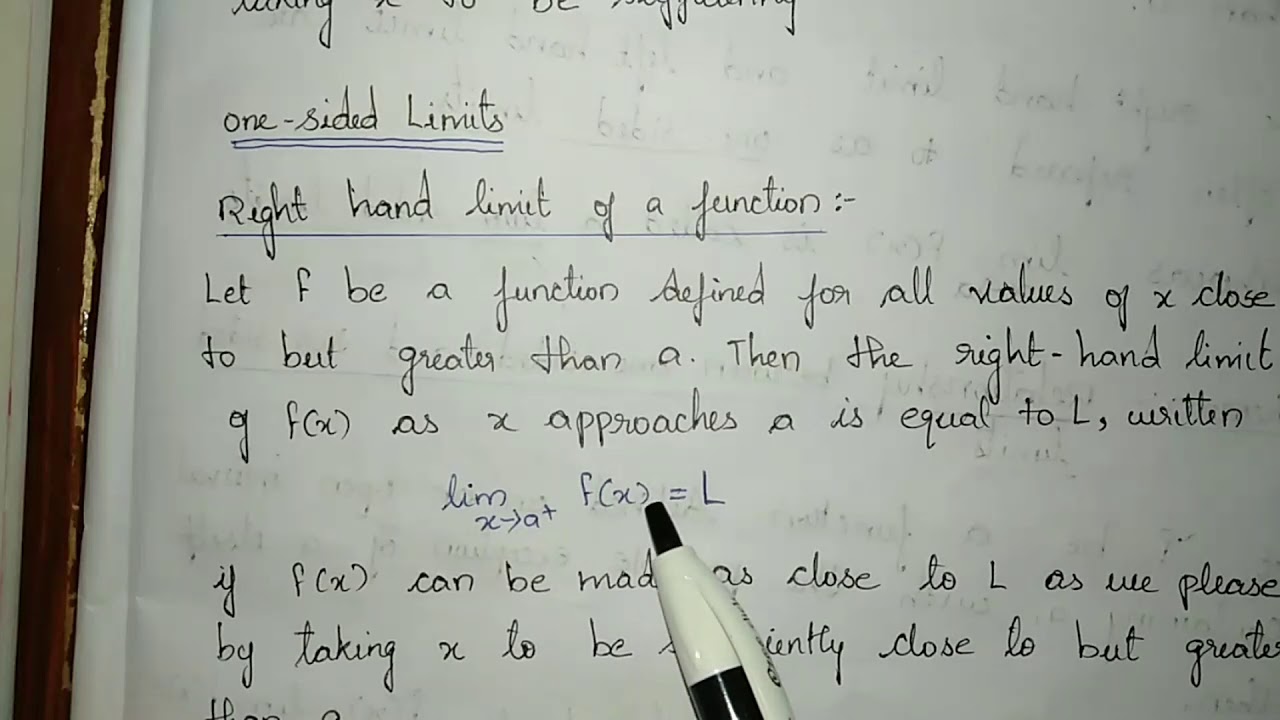 taking x to be sufficiently
one-sided Limits
Right hand limit of a function :-
Let f be a function defined for all values of x close
to but greater than a. Then the right-hand limit
of f(x) as x approaches a is equal to L, written
lim x→a+ f(x) = L
if f(x) can be made as close to L as we please
by taking x to be sufficiently close to but greater
than a